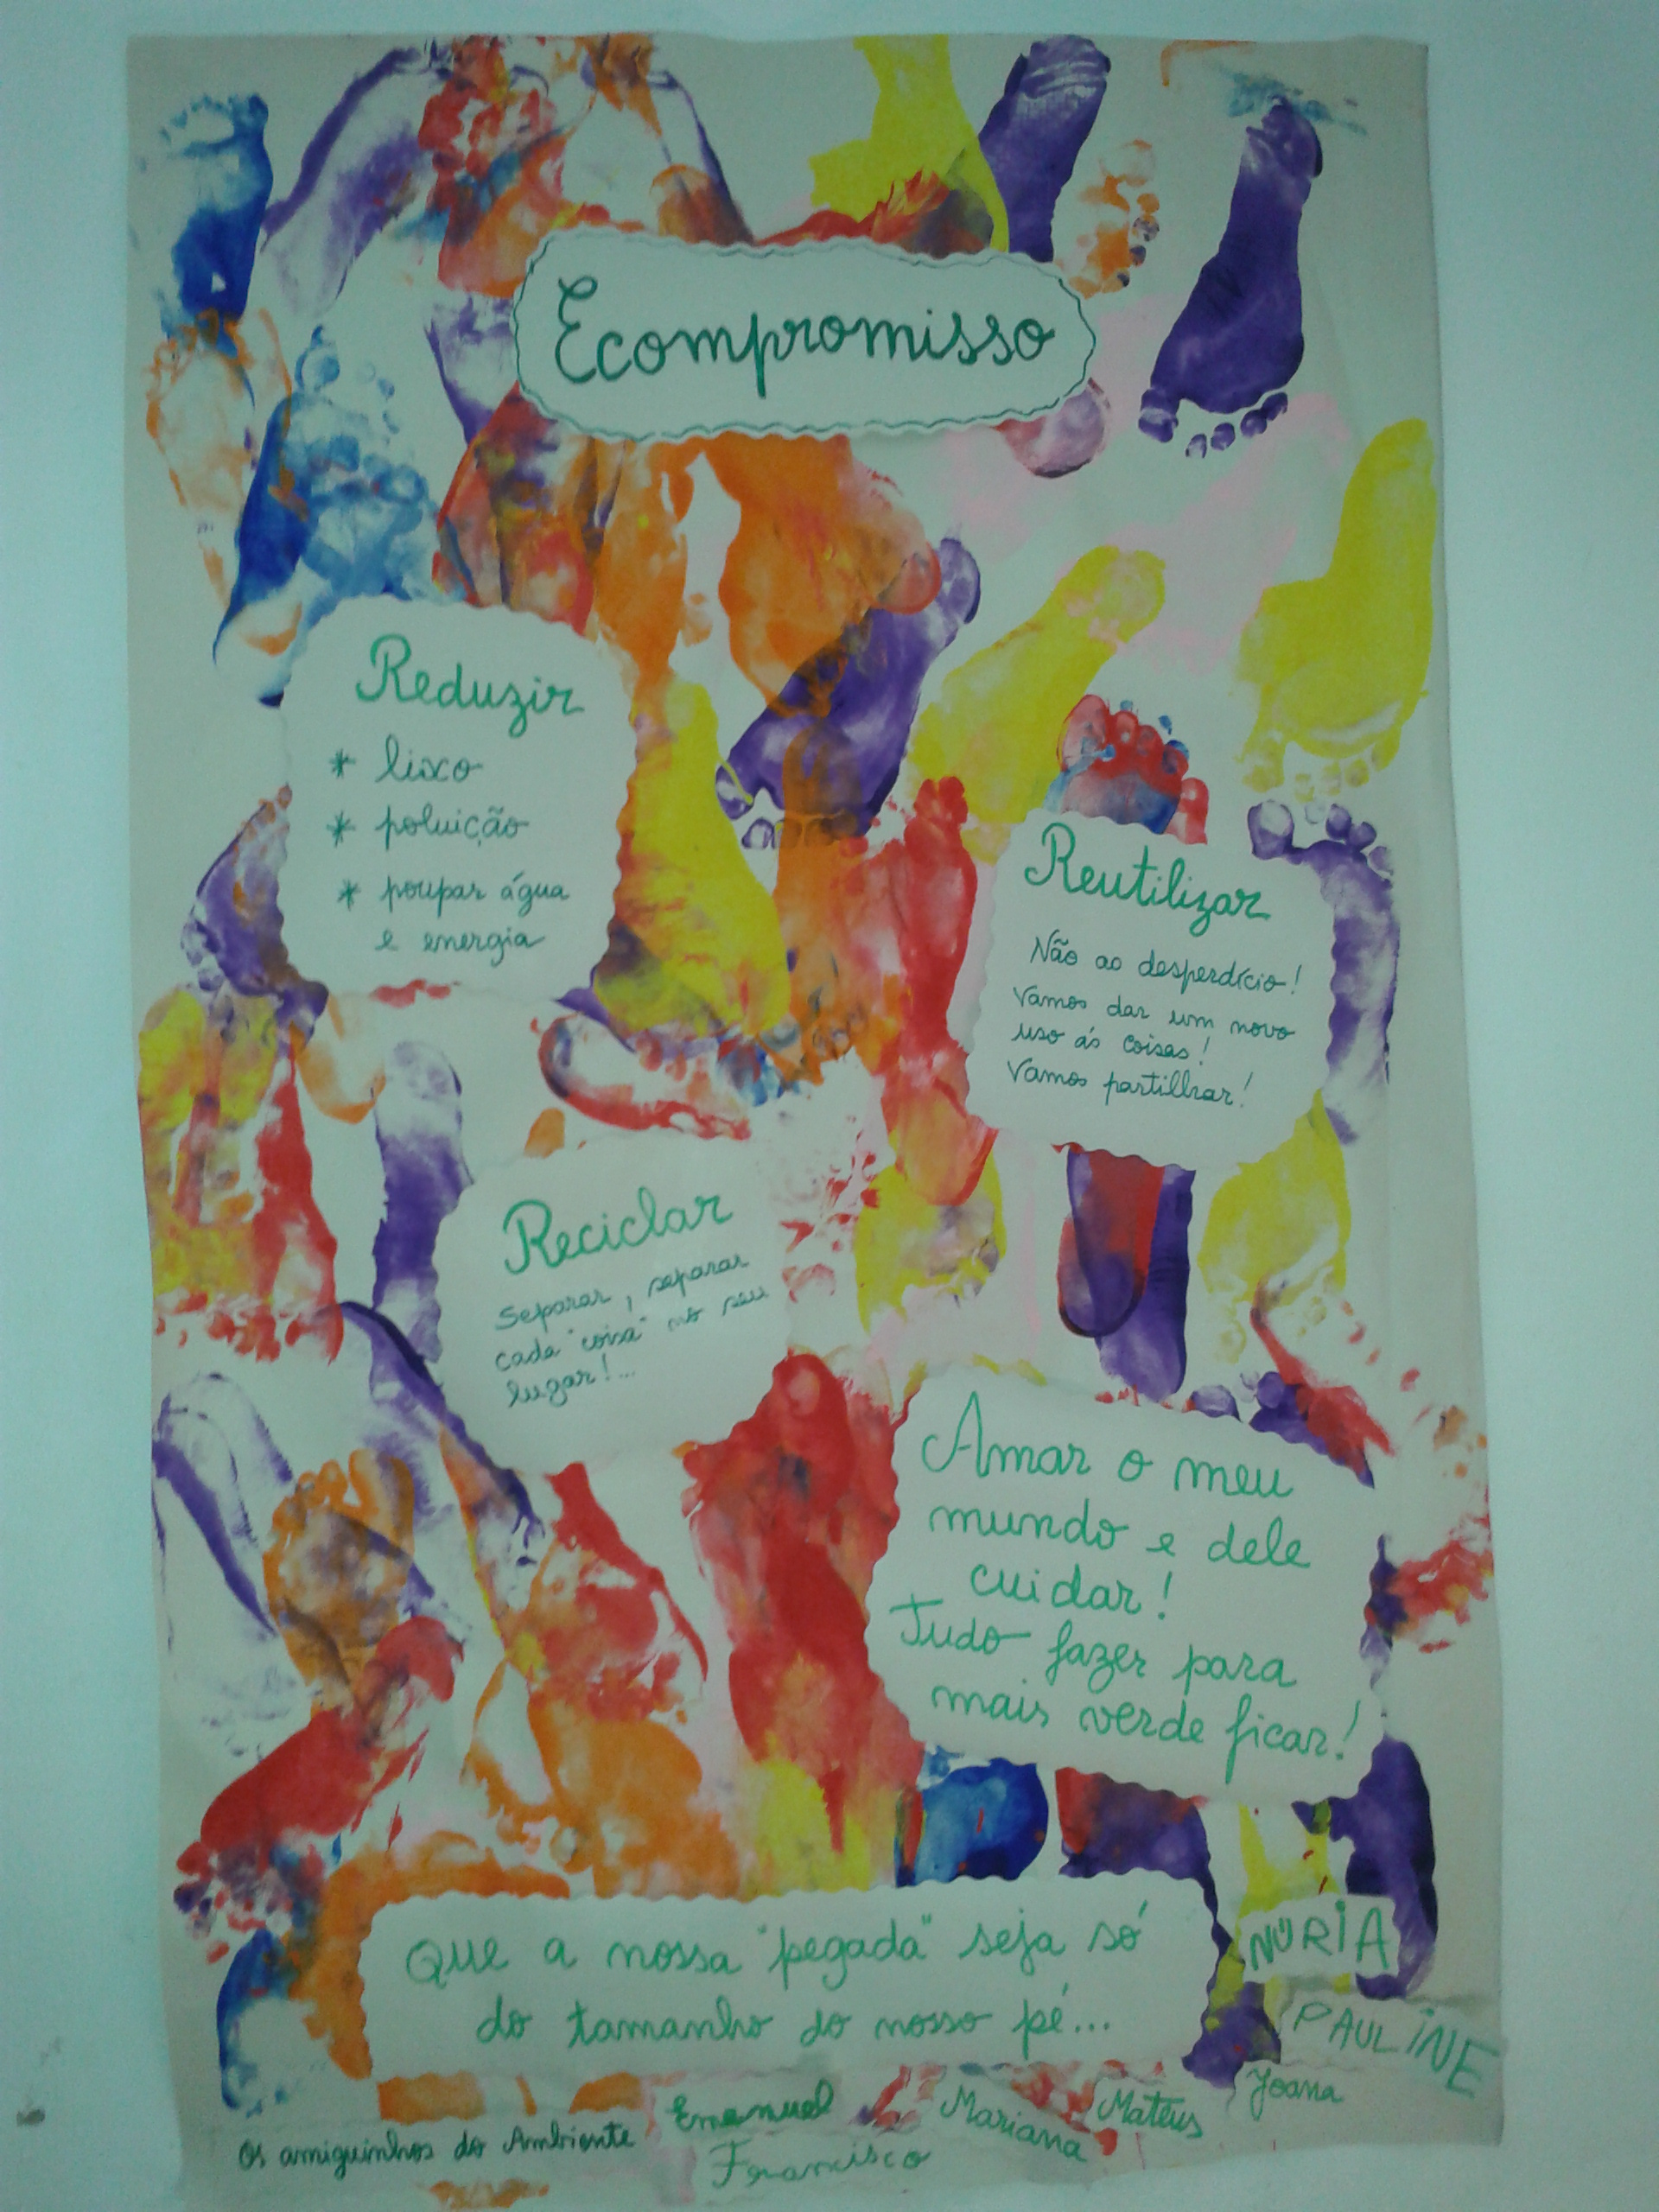 Ecompromisso
Reduzir
* lixo
* poluição
* poupar água
e energia
Reutilizar
Não ao desperdício!
Vamos dar um novo
uso ás coisas!
Vamos partilhar!
Reciclar
Separar, separar
cada "coisa" no seu
lugar!...
Amar o meu
mundo e dele
cuidar!
Tudo fazer para
mais verde ficar!
Que a nossa "pegada" seja só
do tamanho do nosso pé...
NÚRIA
PAULINE
Joana
Mateus
Mariana
Emanuel
Francisco
Os amiguinhos do Ambiente